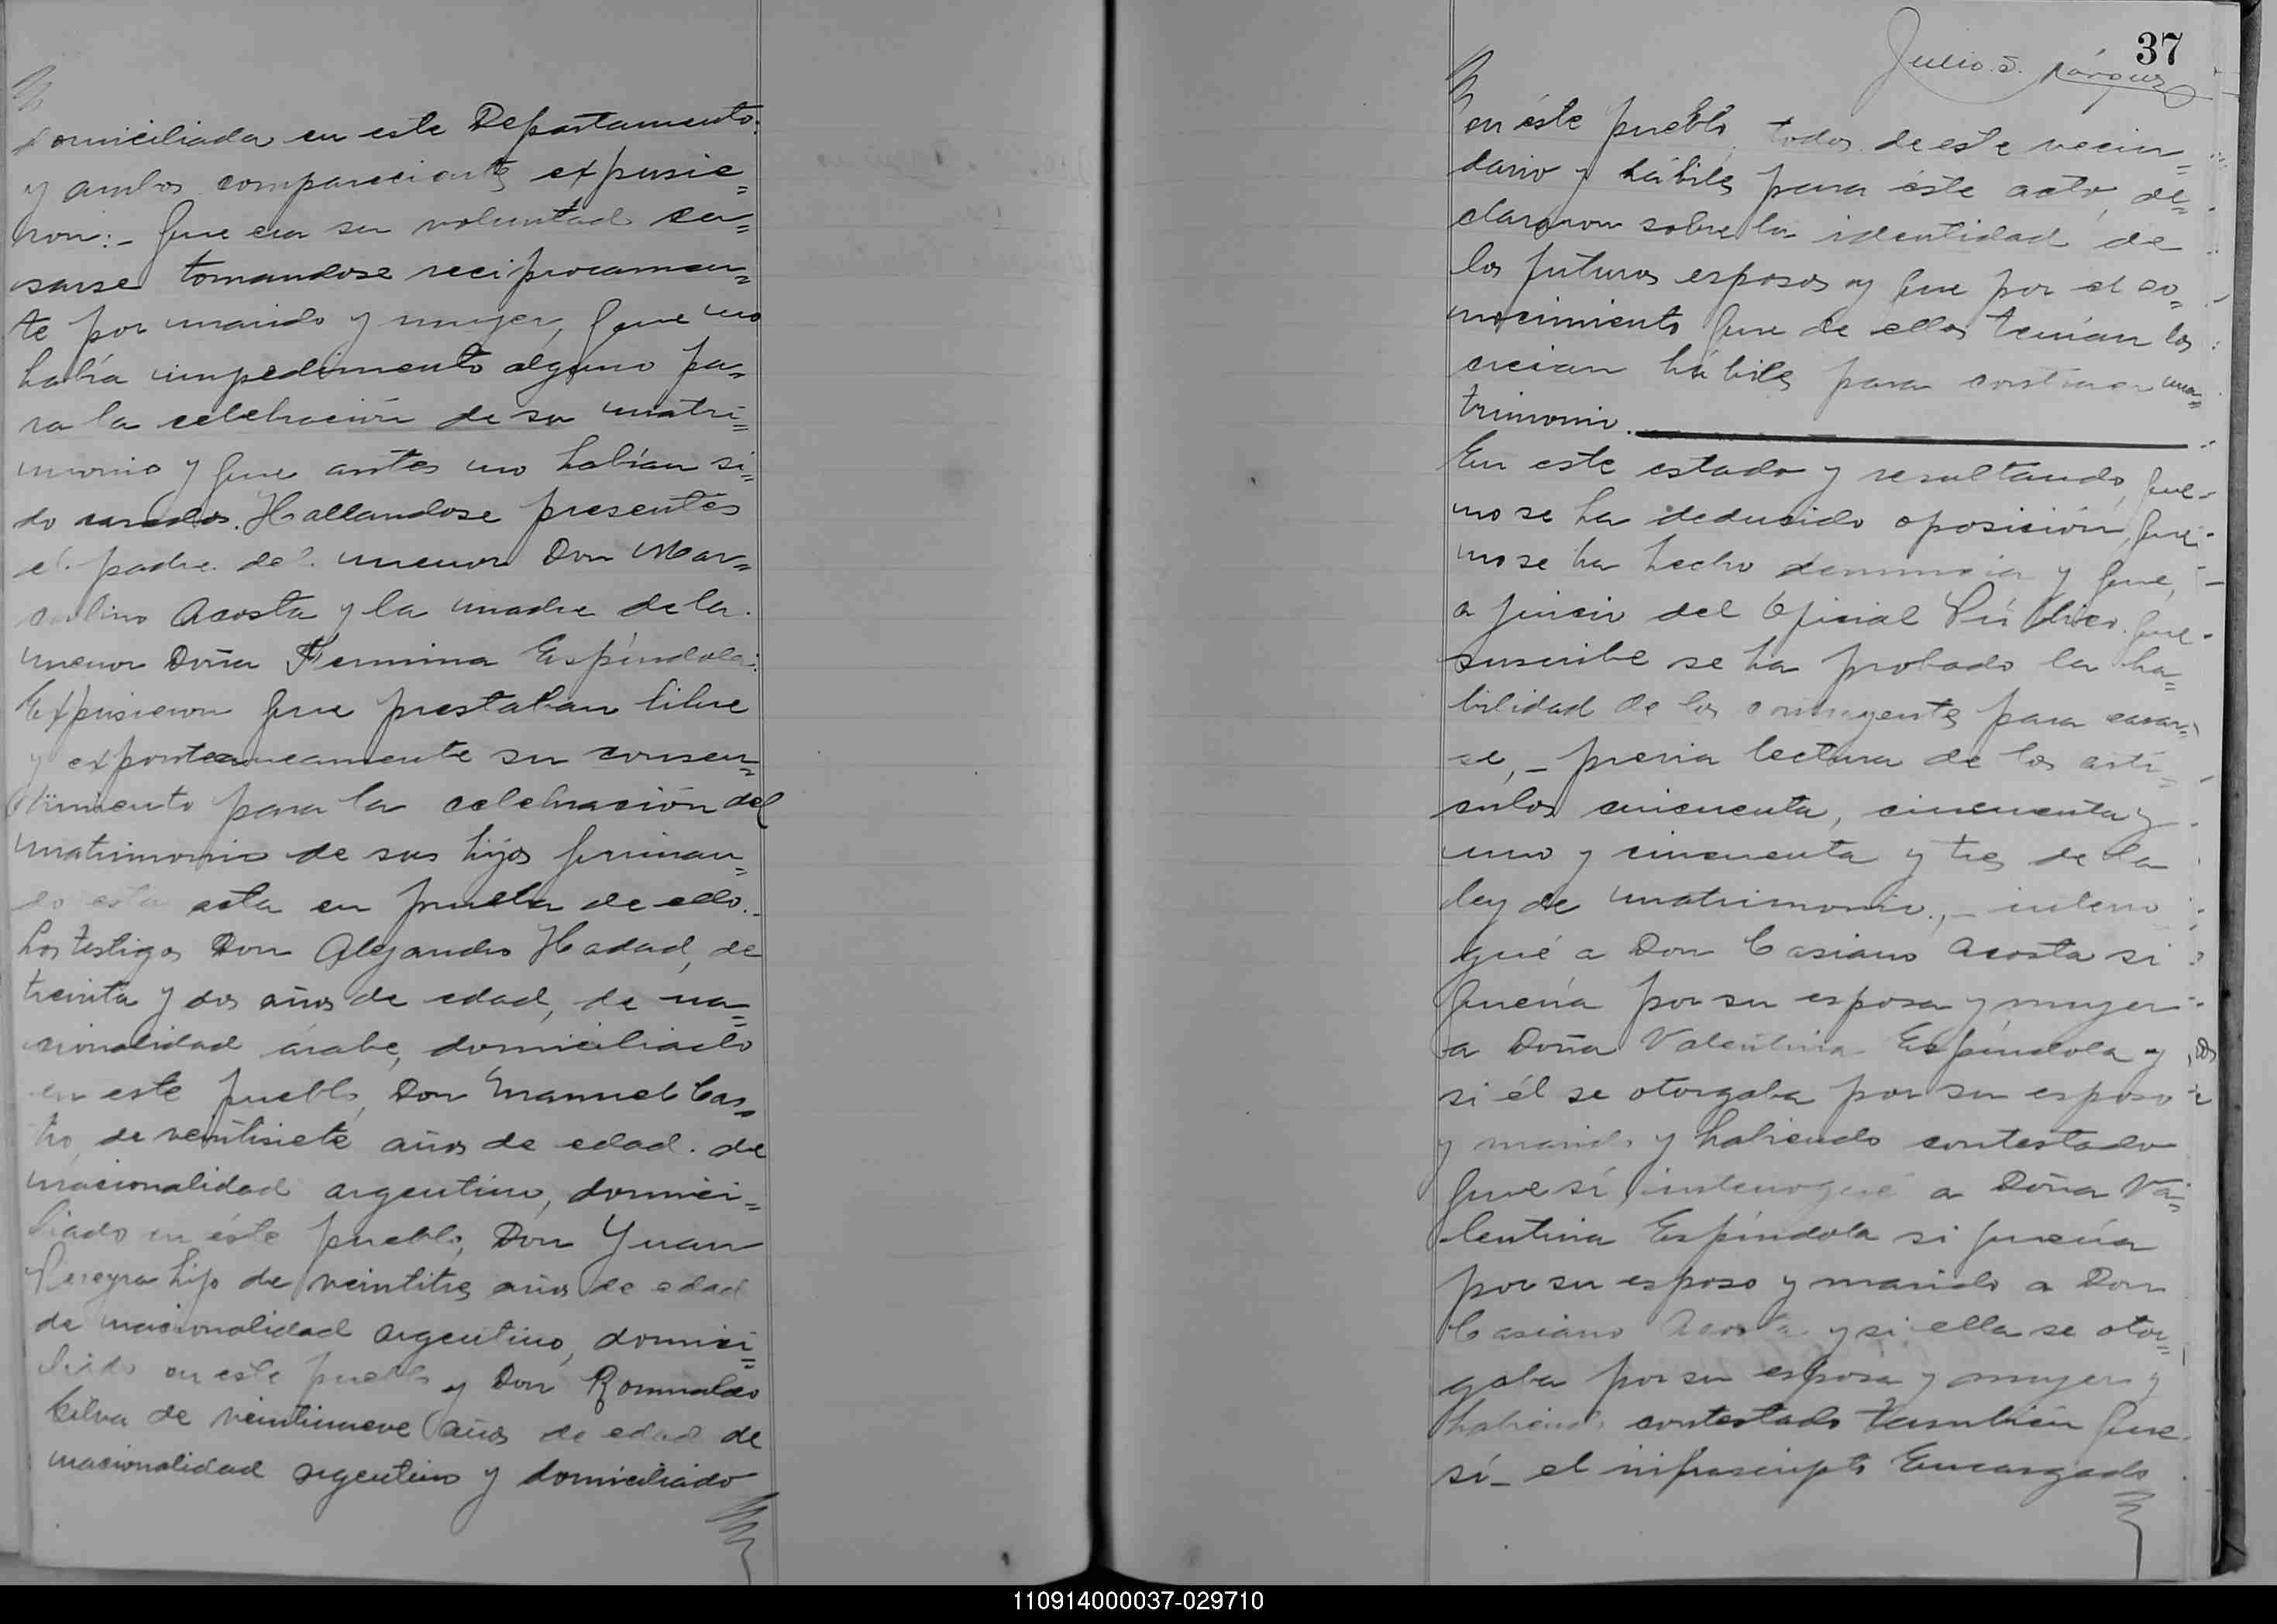 domiciliada en este Departamento:
y ambos comparecientes expusie=
ron:- Que era su voluntad ca=
sarse tomandose reciprocamen=
te por marido y mujer, que no
había impedimento alguno pa=
ra la celebración de su matri=
monio y que antes no habían si=
do casados. Hallandose presentes
el padre del menor Don Mar=
celino Acosta y la madre de la
menor Doña Fermina Espíndola:
Expusieron que prestaban libre
y expontaneamente su consen=
timiento para la celebración del
matrimonio de sus hijos firman=
do esta acta en prueba de ello.-
Los testigos Don Alejandro Hadad, de
treinta y dos años de edad, de na=
cionalidad árabe, domiciliado
en este pueblo, Don Manuel Cas=
tro, de veintisiete años de edad. de
nacionalidad argentino, domici=
liado en éste pueblo, Don Juan
Pereyra hijo de veintitres años de edad
de nacionalidad argentino, domici=
liado en este pueblo y Don Romualdo
Silva de veintinueve años de edad de
nacionalidad argentino y domiciliado
37
Julio S.
en éste pueblo, todos de este vecin=
dario y hábiles para éste acto, de=
clararon sobre la identidad de
los futuros esposos y que por el co=
nocimiento que de ellos tenían los
creian hábiles para contraer ma=
trimonio.
En este estado y resultando, que-
no se ha deducido oposición, que-
no se ha hecho denuncia y que,
a juicio del Oficial Público. que-
suscribe se ha probado la ha=
bilidad de los contrayentes para casar=
se,- previa lectura de los artí=
culos cincuenta, cincuenta y
uno y cincuenta y tres de la
ley de matrimonio,- interro
gué a Don Casiano Acosta si
quería por su esposa y mujer
a Doña Valentina Espíndola y
si él se otorgaba por su esposo
y marido y habiendo contestado
que sí, interrogué a Doña Va=
lentina Espíndola si quería
por su esposo y marido a Don
Casiano Acosta y si ella se otor=
gaba por su esposa y mujer y
habiendo contestado también que
sí- el infrascripto Encargado
110914000037-029710